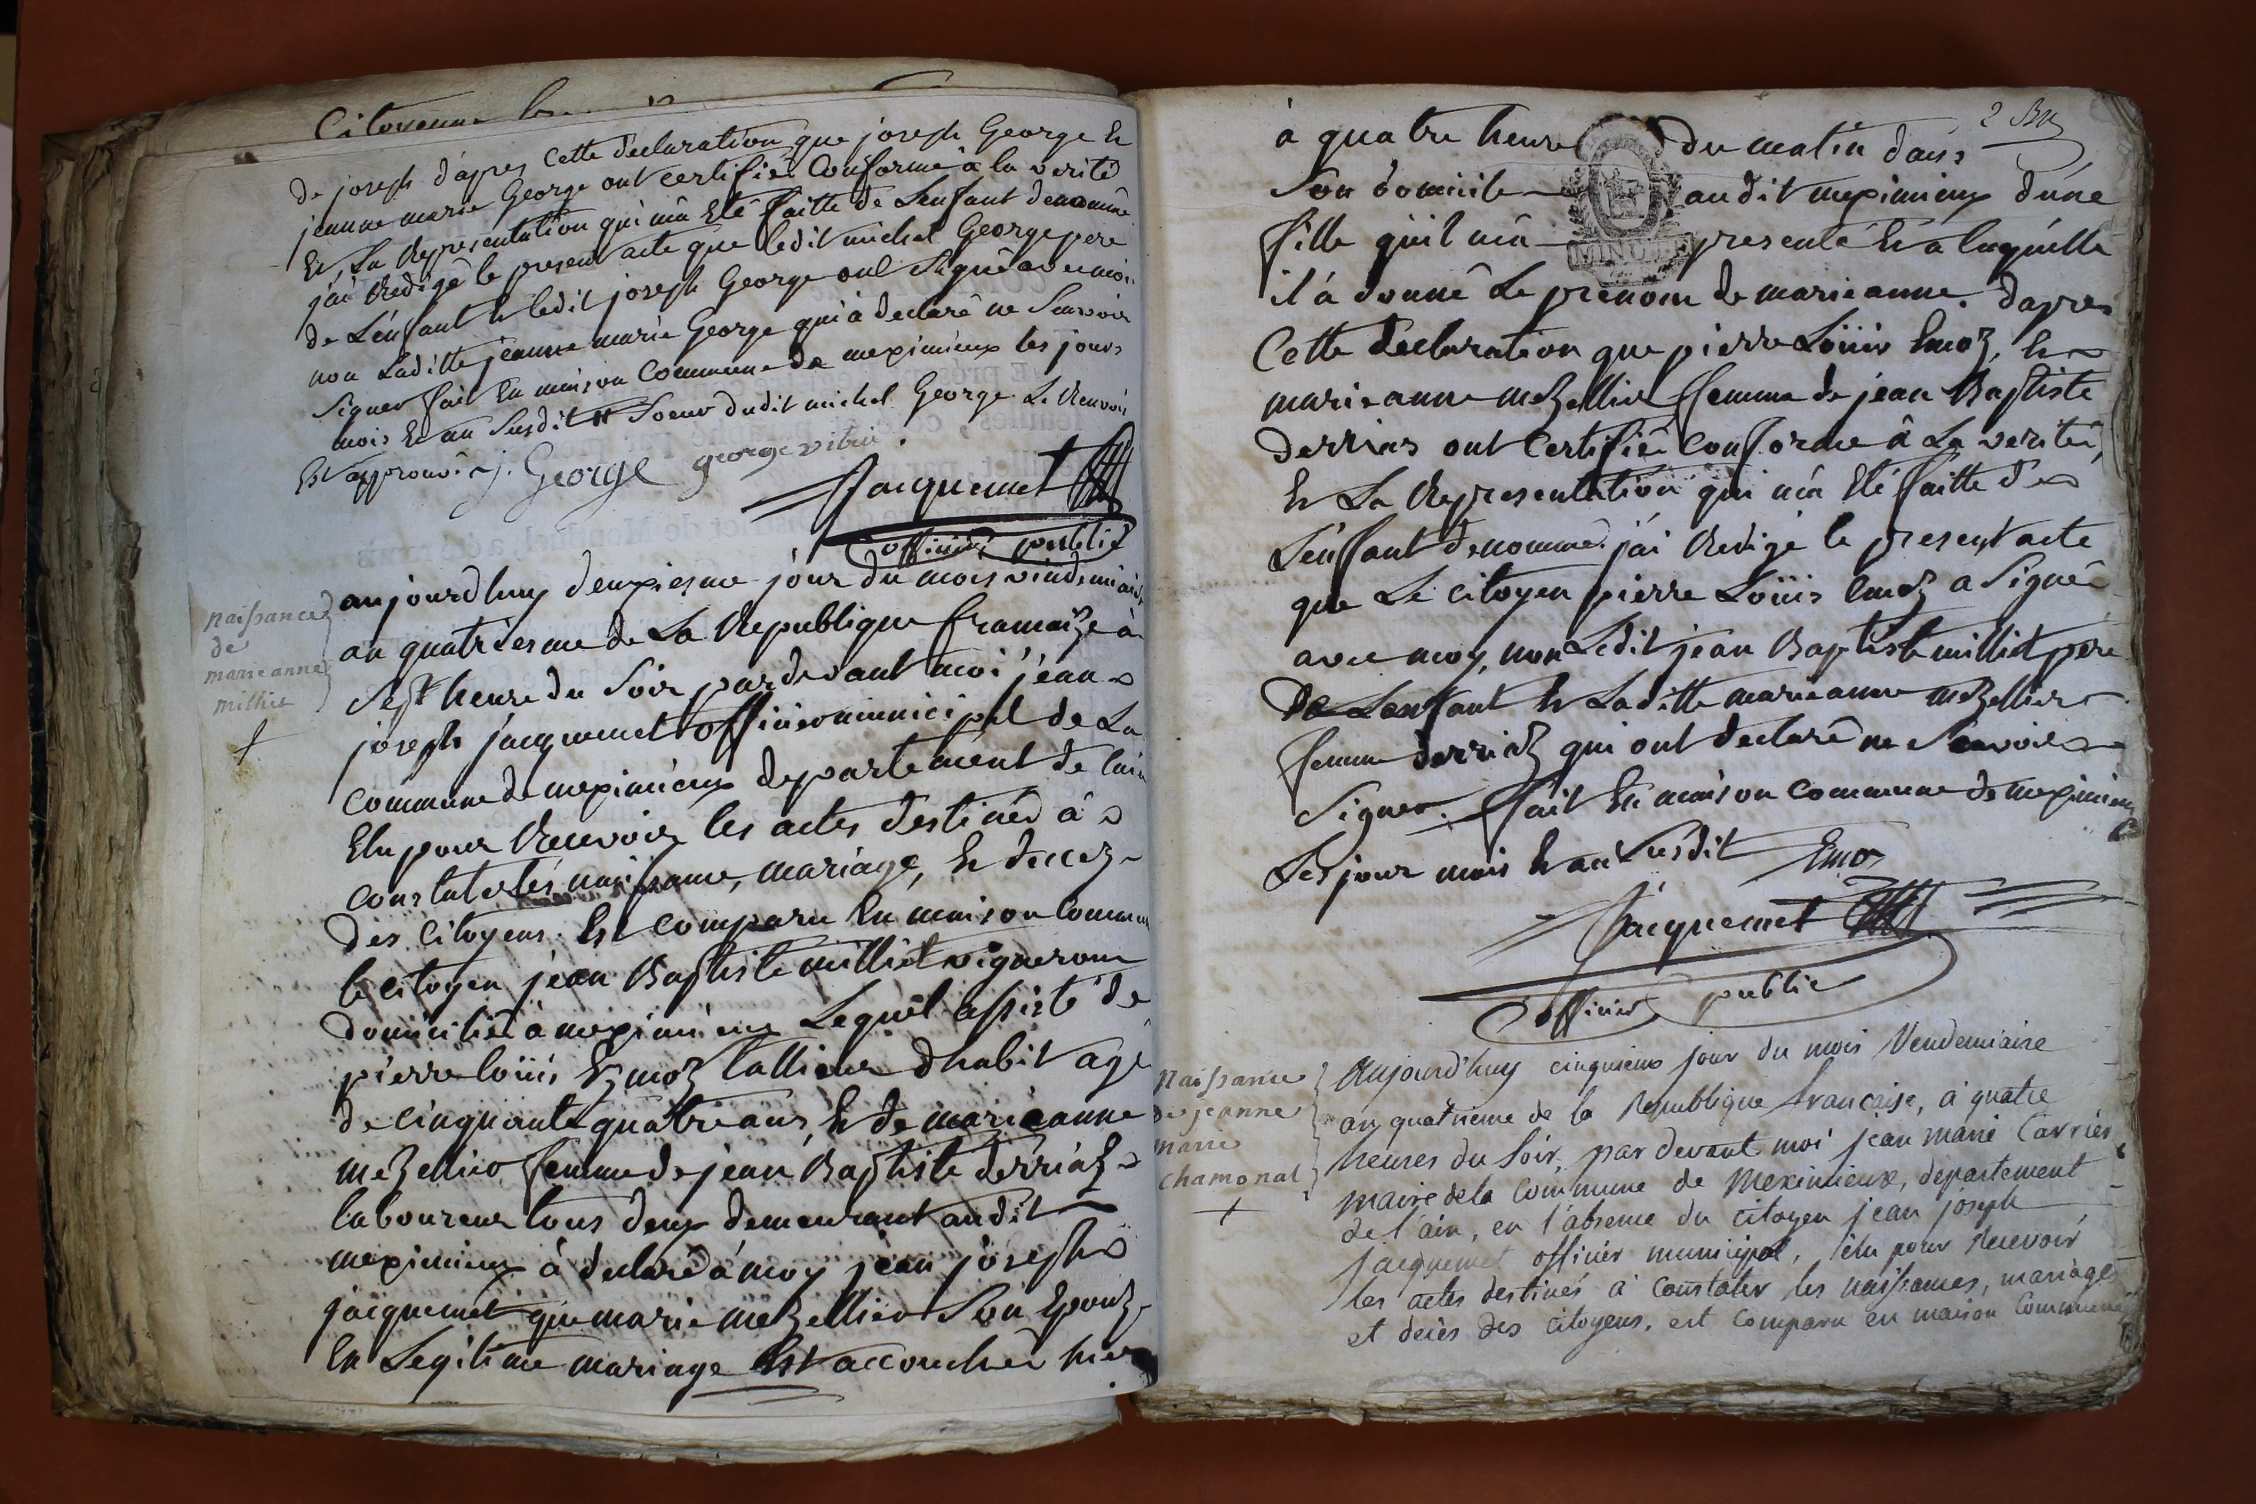 Citoyenne
de joseph d'apres Cette declaration que joseph George Et
jeanne marie George ont certifié Conforme a la verité
Et, La Representation qui m'a Eté faitte de L'enfant denommé
j'ai Redigé le present acte que ledit michel George pere
de L'enfant Et ledit joseph George ont Signé avec moi
non Laditte jeanne marie George qui à declaré ne Scavoir
Signer fait En maison Commune de meximieux les jours
mois Et an Susdit # Soeur dudit michel George Le Renvoi
Est approuvé j. George george vitric
Jacquemet
officier public
naissance
de
marieanne
milliet
aujourdhuy deuxiesme jour du mois vindemiaire
an quatriesme de La Republique francaize à
Sept heure du Soir pardevant moi jean
joseph jacquemet officier municipal de La
Commune de meximieux departement de lain
Elu pour Recevoir les actes destinéd à
constater les naissance, mariage, Et decez
des Citoyens. Est comparu En maison Commune
le citoyen jean Baptiste milliet vigneron
domicilié à meximieux Lequel assisté de
pierre loüis Emoz tallieur dhabit agé
de cinquante quatre ans, Et de marieanne
mezellier femme de jean Baptiste derriaz
laboureur tous deux demeurant audit
meximieux à declaré à moy jean joseph
jacquemet que marie mezellier Son Epouze
En Legitime mariage Est accouchée hier
2
à quatre heure du matin dans
Son domicile audit meximieux d'une
fille qu'il m'a presenté Et a laquelle
il à donné Le prenom de marieanne. dapres
Cette declaration que pierre Loüis Emoz, Et
marieanne mezellier femme de jean Baptiste
derrias ont Certifié Conforme à La verité,
Et La Representation qui m'a Eté faitte de
L'enfant denommé. j'ai Redigé le present acte
que Le Citoyen pierre Loüis Emoz a Signé
avec moy, non Ledit jean Baptiste milliet pere
de Lenfant Et Laditte marieanne mezellier
femme derriaz qui ont declaré ne Scavoir
Signer. fait En maison Commune de meximieux
Les jour mois Et an Susdit Emoz
Jacquemet
officier public
MINUTE
Naissance
de jeanne
marie
chamonal
Aujourd'huy cinquieme jour du mois Vendemiaire
an quatrieme de la Republique francaise, à quatre
heures du soir, par devant moi jean marie Carrier
maire de la Commune de Meximieux, departement
de l'ain, en l'absence du citoyen jean joseph
jacquemet officier municipal, élu pour recevoir
les actes destinés à constater les naissances, mariages
et decès des citoyens, est comparu en maison Commune